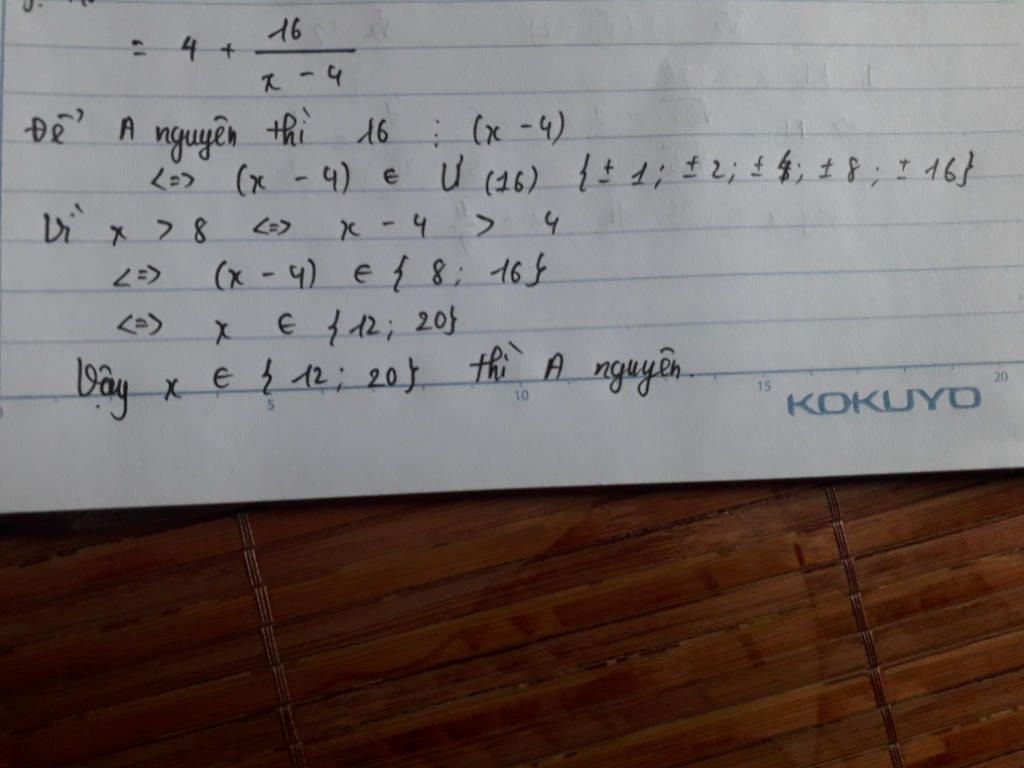 = 4 + 16 / (x - 4)
Để A nguyên thì 16 ⋮ (x - 4)
<=> (x - 4) ∈ Ư (16) {± 1; ± 2; ± 4; ± 8; ± 16}
Vì x > 8 <=> x - 4 > 4
<=> (x - 4) ∈ {8; 16}
<=> x ∈ {12; 20}
Vậy x ∈ {12; 20} thì A nguyên.
5 10 15 20
KOKUYO